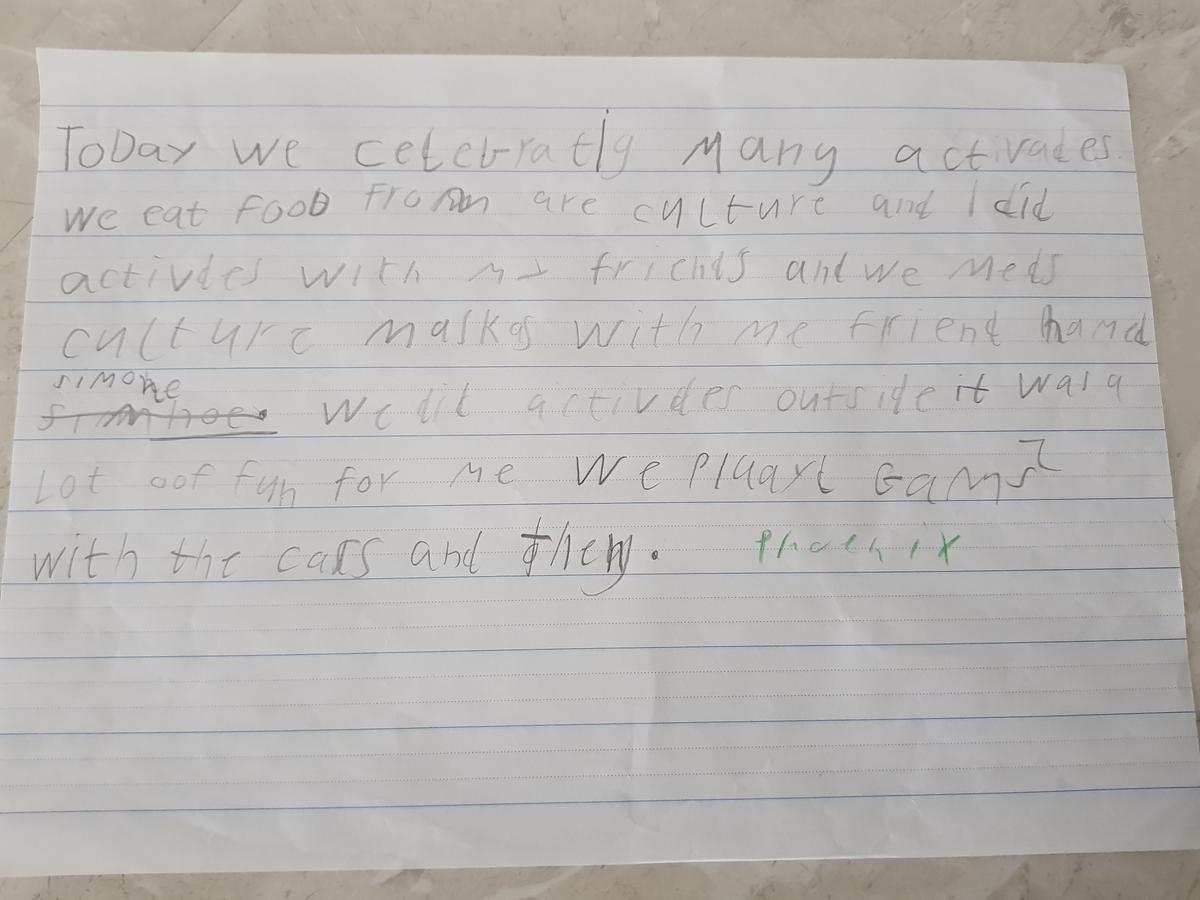 ToDay we celebratig many activades.
we eat FooD from are culture and I did
activdes with my friends and we meds
culture masks with me friend named
simone
we dit activdes outside it was a
Lot oof fun for me we Pluayt Gams
with the cars and them. Phoenix